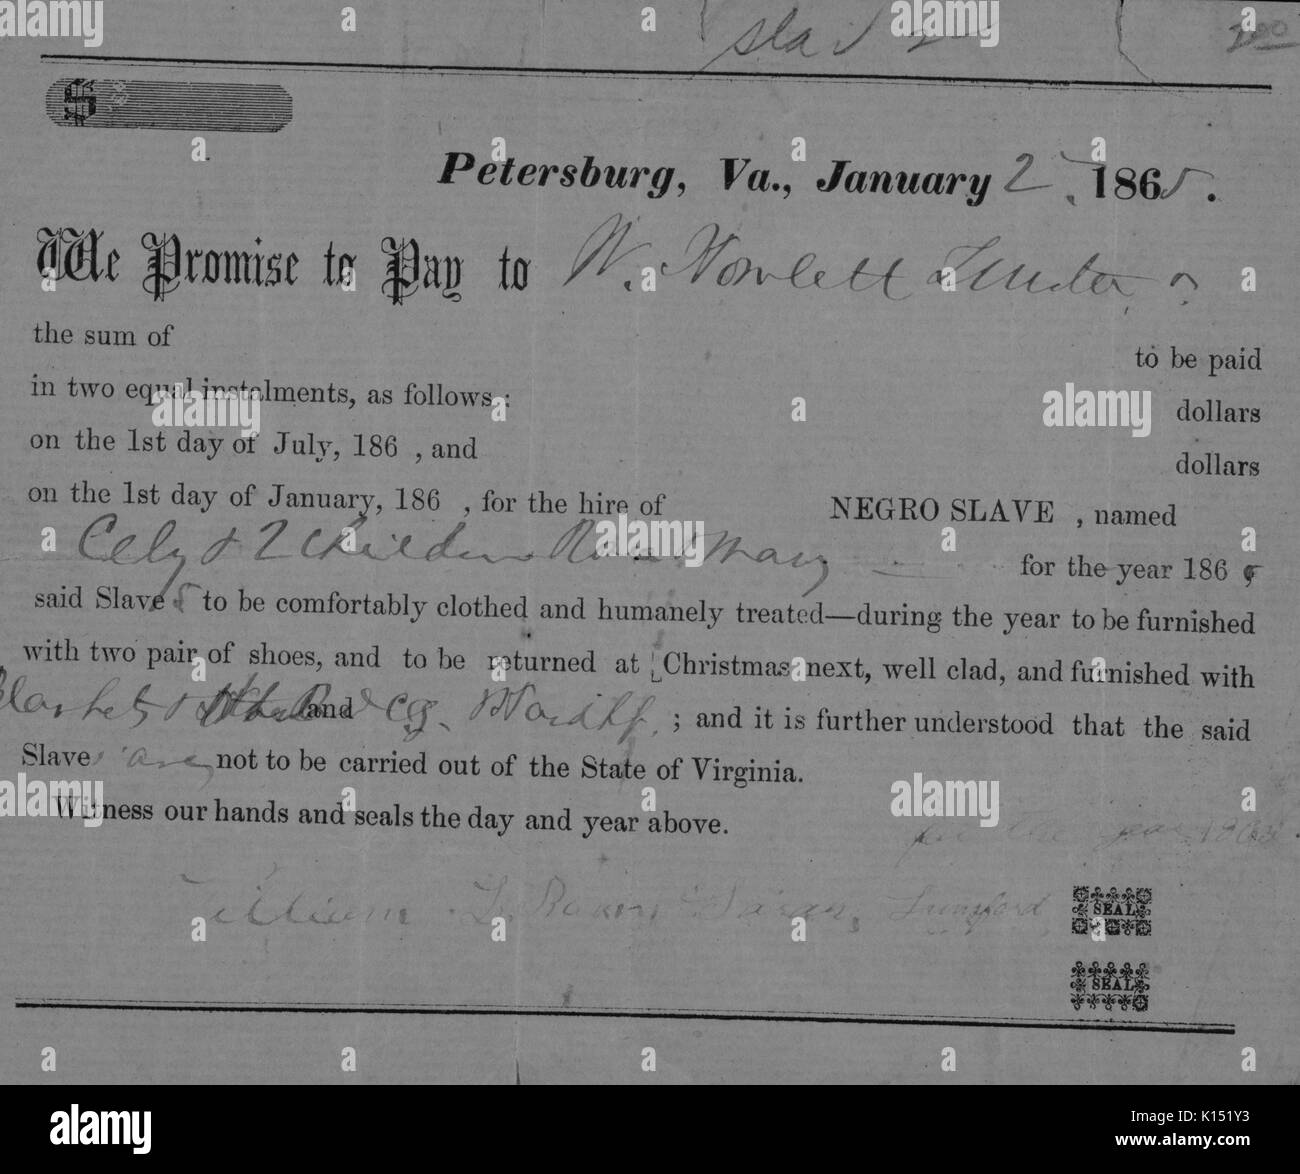 200
$
Petersburg, Va., January 2, 1865.
We Promise to Pay to W. Howlett
the sum of to be paid
in two equal instalments, as follows: dollars
on the 1st day of July, 186 , and dollars
on the 1st day of January, 186 , for the hire of NEGRO SLAVE , named
Cely & 2 Children Rosa & Mary for the year 1865
said Slaves to be comfortably clothed and humanely treated—during the year to be furnished
with two pair of shoes, and to be returned at Christmas next, well clad, and furnished with
Blankets & and ; and it is further understood that the said
Slaves are not to be carried out of the State of Virginia.
Witness our hands and seals the day and year above.
for the year
William Lunsford SEAL
SEAL
alamy
alamy stock photo
K151Y3
www.alamy.com